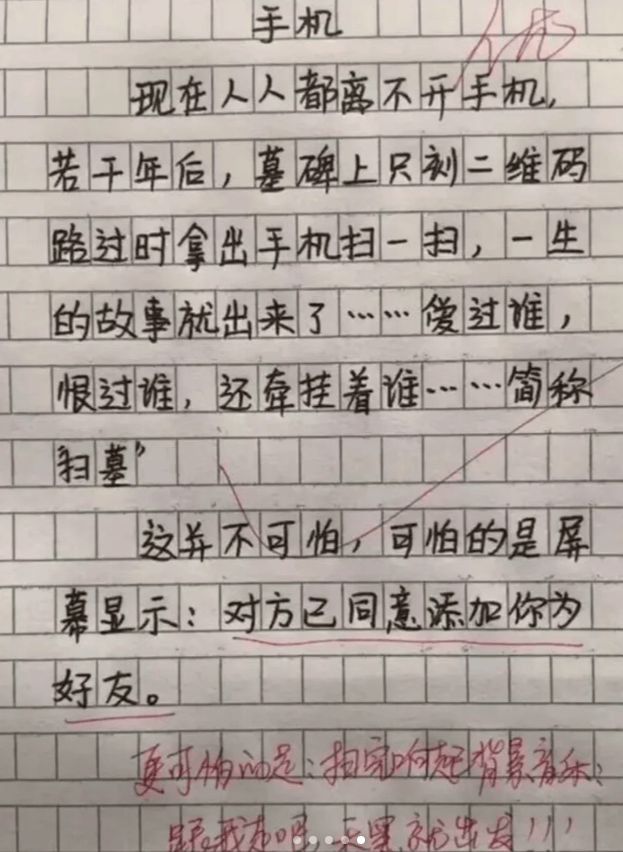 手机
优
现在人人都离不开手机，
若干年后，墓碑上只刻二维码
路过时拿出手机扫一扫，一生
的故事就出来了……爱过谁，
恨过谁，还牵挂着谁……简称
“扫墓”
这并不可怕，可怕的是屏
幕显示：对方已同意添加你为
好友。
更可怕的是：扫完响起背景音乐：
跟我走吧，天黑就出发!!!